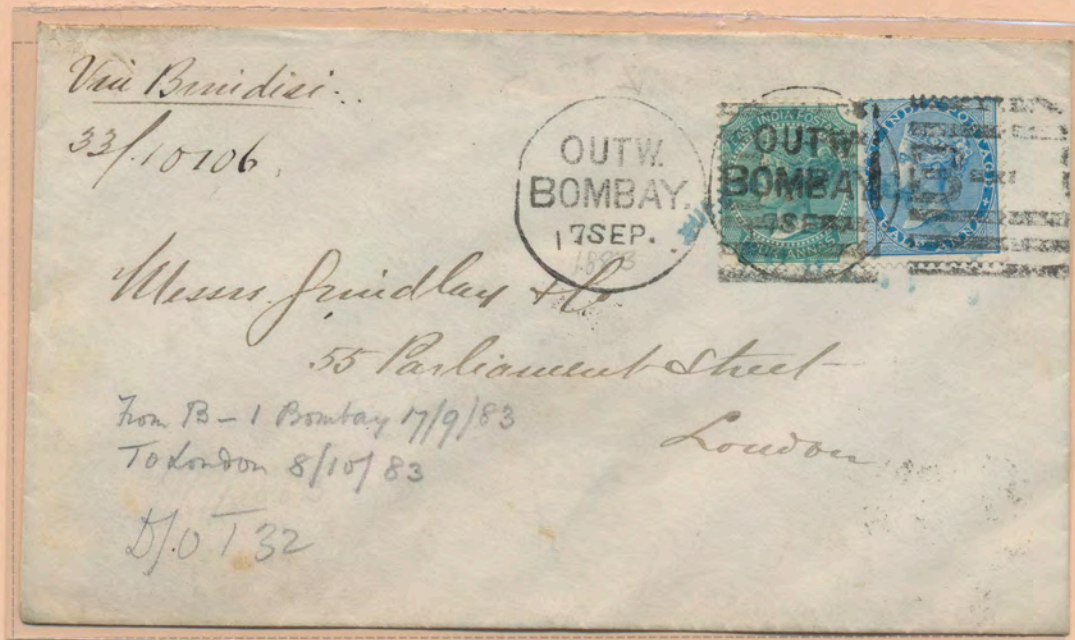 Via Brindisi
33/.10106
OUTW.
BOMBAY.
17SEP.
1883
OUTW
BOMBAY
17SEP
EAST INDIA POSTAGE
Messrs. Grindlay & Co
55 Parliament Street
London
From B-1 Bombay 17/9/83
To London 8/10/83
D/.O T 32